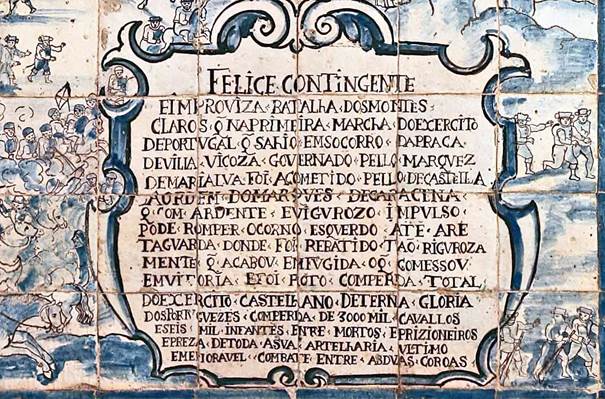 FELICE·CONTINGENTE
EIMPROVIZA·BATALHA·DOSMONTES·
CLAROS·Q̃·NAPRIMEIRA·MARCHA·DOEXERCITO
DEPORTUGAL·Q̃·SAHIO·EMSOCORRO·DAPRACA·
DEVILIA·VICOZA·GOVERNADO·PELLO·MARQVEZ
DEMARIALVA·FOI·ACOMETIDO·PELLO·DECASTELLA·
AORDEM·DOMARQVES·DECARACENA·
Q̃·COM·ARDENTE·EVIGUROZO·IMPULSO·
PODE·ROMPER·OCORNO·ESQUERDO·ATE·ARE
TAGUARDA·DONDE·FOI·REBATIDO·TAÕ·RIGUROZA
MENTE·Q̃·ACABOV·EMFUGIDA·OQ̃·COMESSOV
EMVITORIA·EFOI·ROTO·COMPERDA·TOTAL
DOEXERCITO·CASTELLANO·DETERNA·GLORIA
DOSPORTUGUEZES·COMPERDA·DE·3000·MIL·CAVALLOS
ESEIS·MIL·INFANTES·ENTRE·MORTOS·EPRIZIONEIROS
EPREZA·DETODA·ASVA·ARTELHARIA·VLTIMO
EMEMORAVEL·COMBATE·ENTRE·ABDVAS·COROAS·